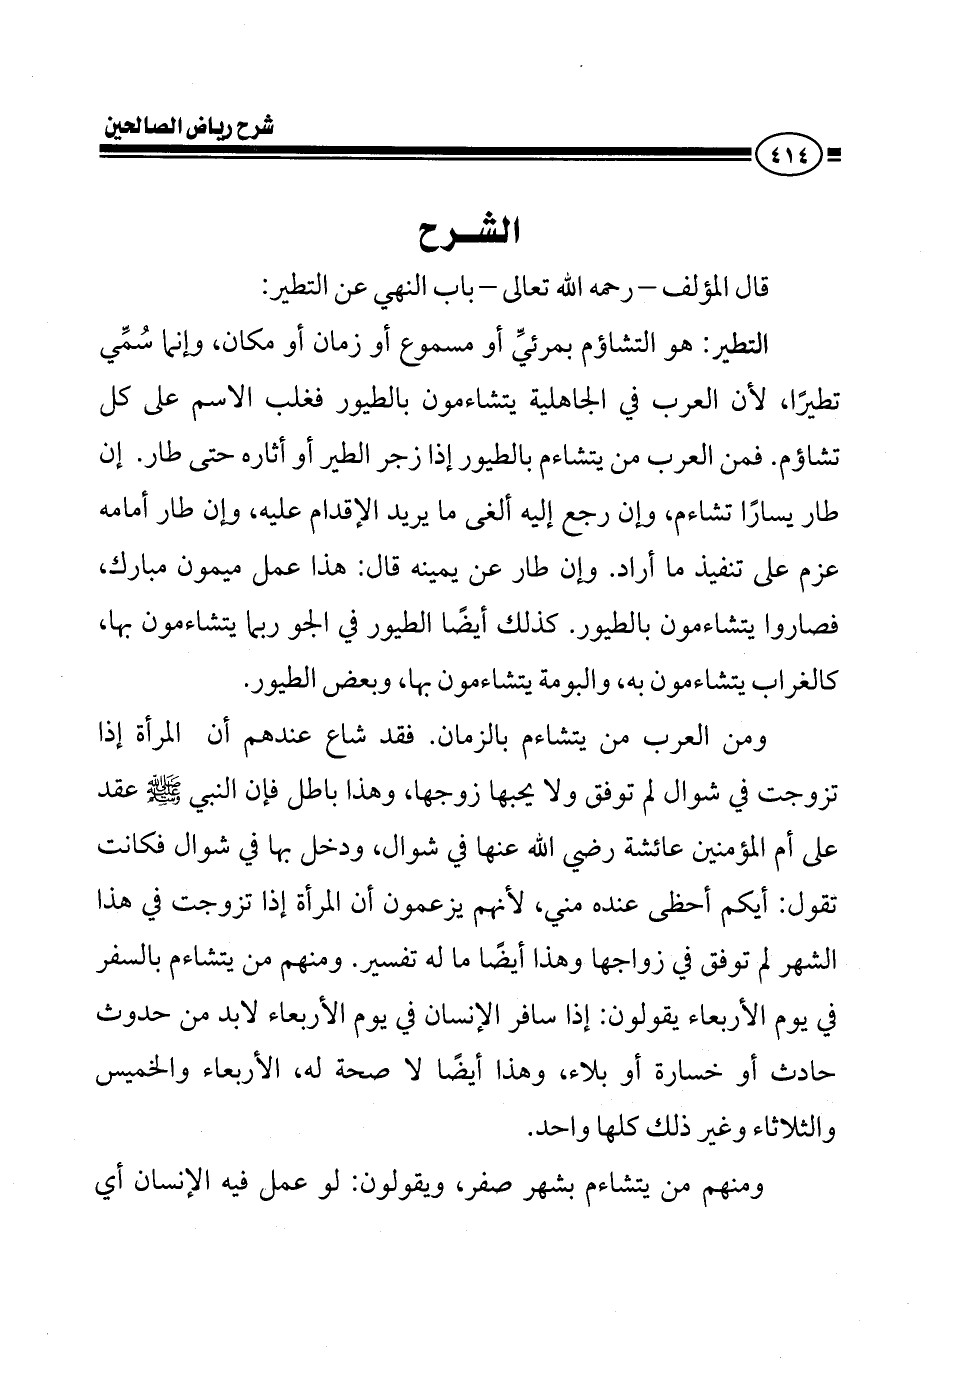 شرح رياض الصالحين
٤١٤
الشـرح
قال المؤلف – رحمه الله تعالى – باب النهي عن التطير:
التطير: هو التشاؤم بمرئيٍّ أو مسموع أو زمان أو مكان، وإنما سُمِّي
تطيرًا، لأن العرب في الجاهلية يتشاءمون بالطيور فغلب الاسم على كل
تشاؤم. فمن العرب من يتشاءم بالطيور إذا زجر الطير أو أثاره حتى طار. إن
طار يسارًا تشاءم، وإن رجع إليه ألغى ما يريد الإقدام عليه، وإن طار أمامه
عزم على تنفيذ ما أراد. وإن طار عن يمينه قال: هذا عمل ميمون مبارك،
فصاروا يتشاءمون بالطيور. كذلك أيضًا الطيور في الجو ربما يتشاءمون بها،
كالغراب يتشاءمون به، والبومة يتشاءمون بها، وبعض الطيور.
ومن العرب من يتشاءم بالزمان. فقد شاع عندهم أن المرأة إذا
تزوجت في شوال لم توفق ولا يحبها زوجها، وهذا باطل فإن النبي ﷺ عقد
على أم المؤمنين عائشة رضي الله عنها في شوال، ودخل بها في شوال فكانت
تقول: أيكم أحظى عنده مني، لأنهم يزعمون أن المرأة إذا تزوجت في هذا
الشهر لم توفق في زواجها وهذا أيضًا ما له تفسير. ومنهم من يتشاءم بالسفر
في يوم الأربعاء يقولون: إذا سافر الإنسان في يوم الأربعاء لابد من حدوث
حادث أو خسارة أو بلاء، وهذا أيضًا لا صحة له، الأربعاء والخميس
والثلاثاء وغير ذلك كلها واحد.
ومنهم من يتشاءم بشهر صفر، ويقولون: لو عمل فيه الإنسان أي